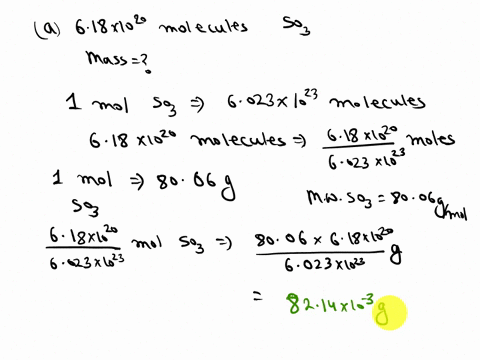 (a) 6.18×10²⁰ molecules SO₃
Mass = ?
1 mol SO₃ ⇒ 6.023×10²³ molecules
6.18×10²⁰ molecules ⇒ 6.18×10²⁰ / 6.023×10²³ moles
1 mol SO₃ ⇒ 80.06 g
M.W. SO₃ = 80.06 g/mol
6.18×10²⁰ / 6.023×10²³ mol SO₃ ⇒ 80.06 × 6.18×10²⁰ / 6.023×10²³ g
= 82.14×10⁻³ g